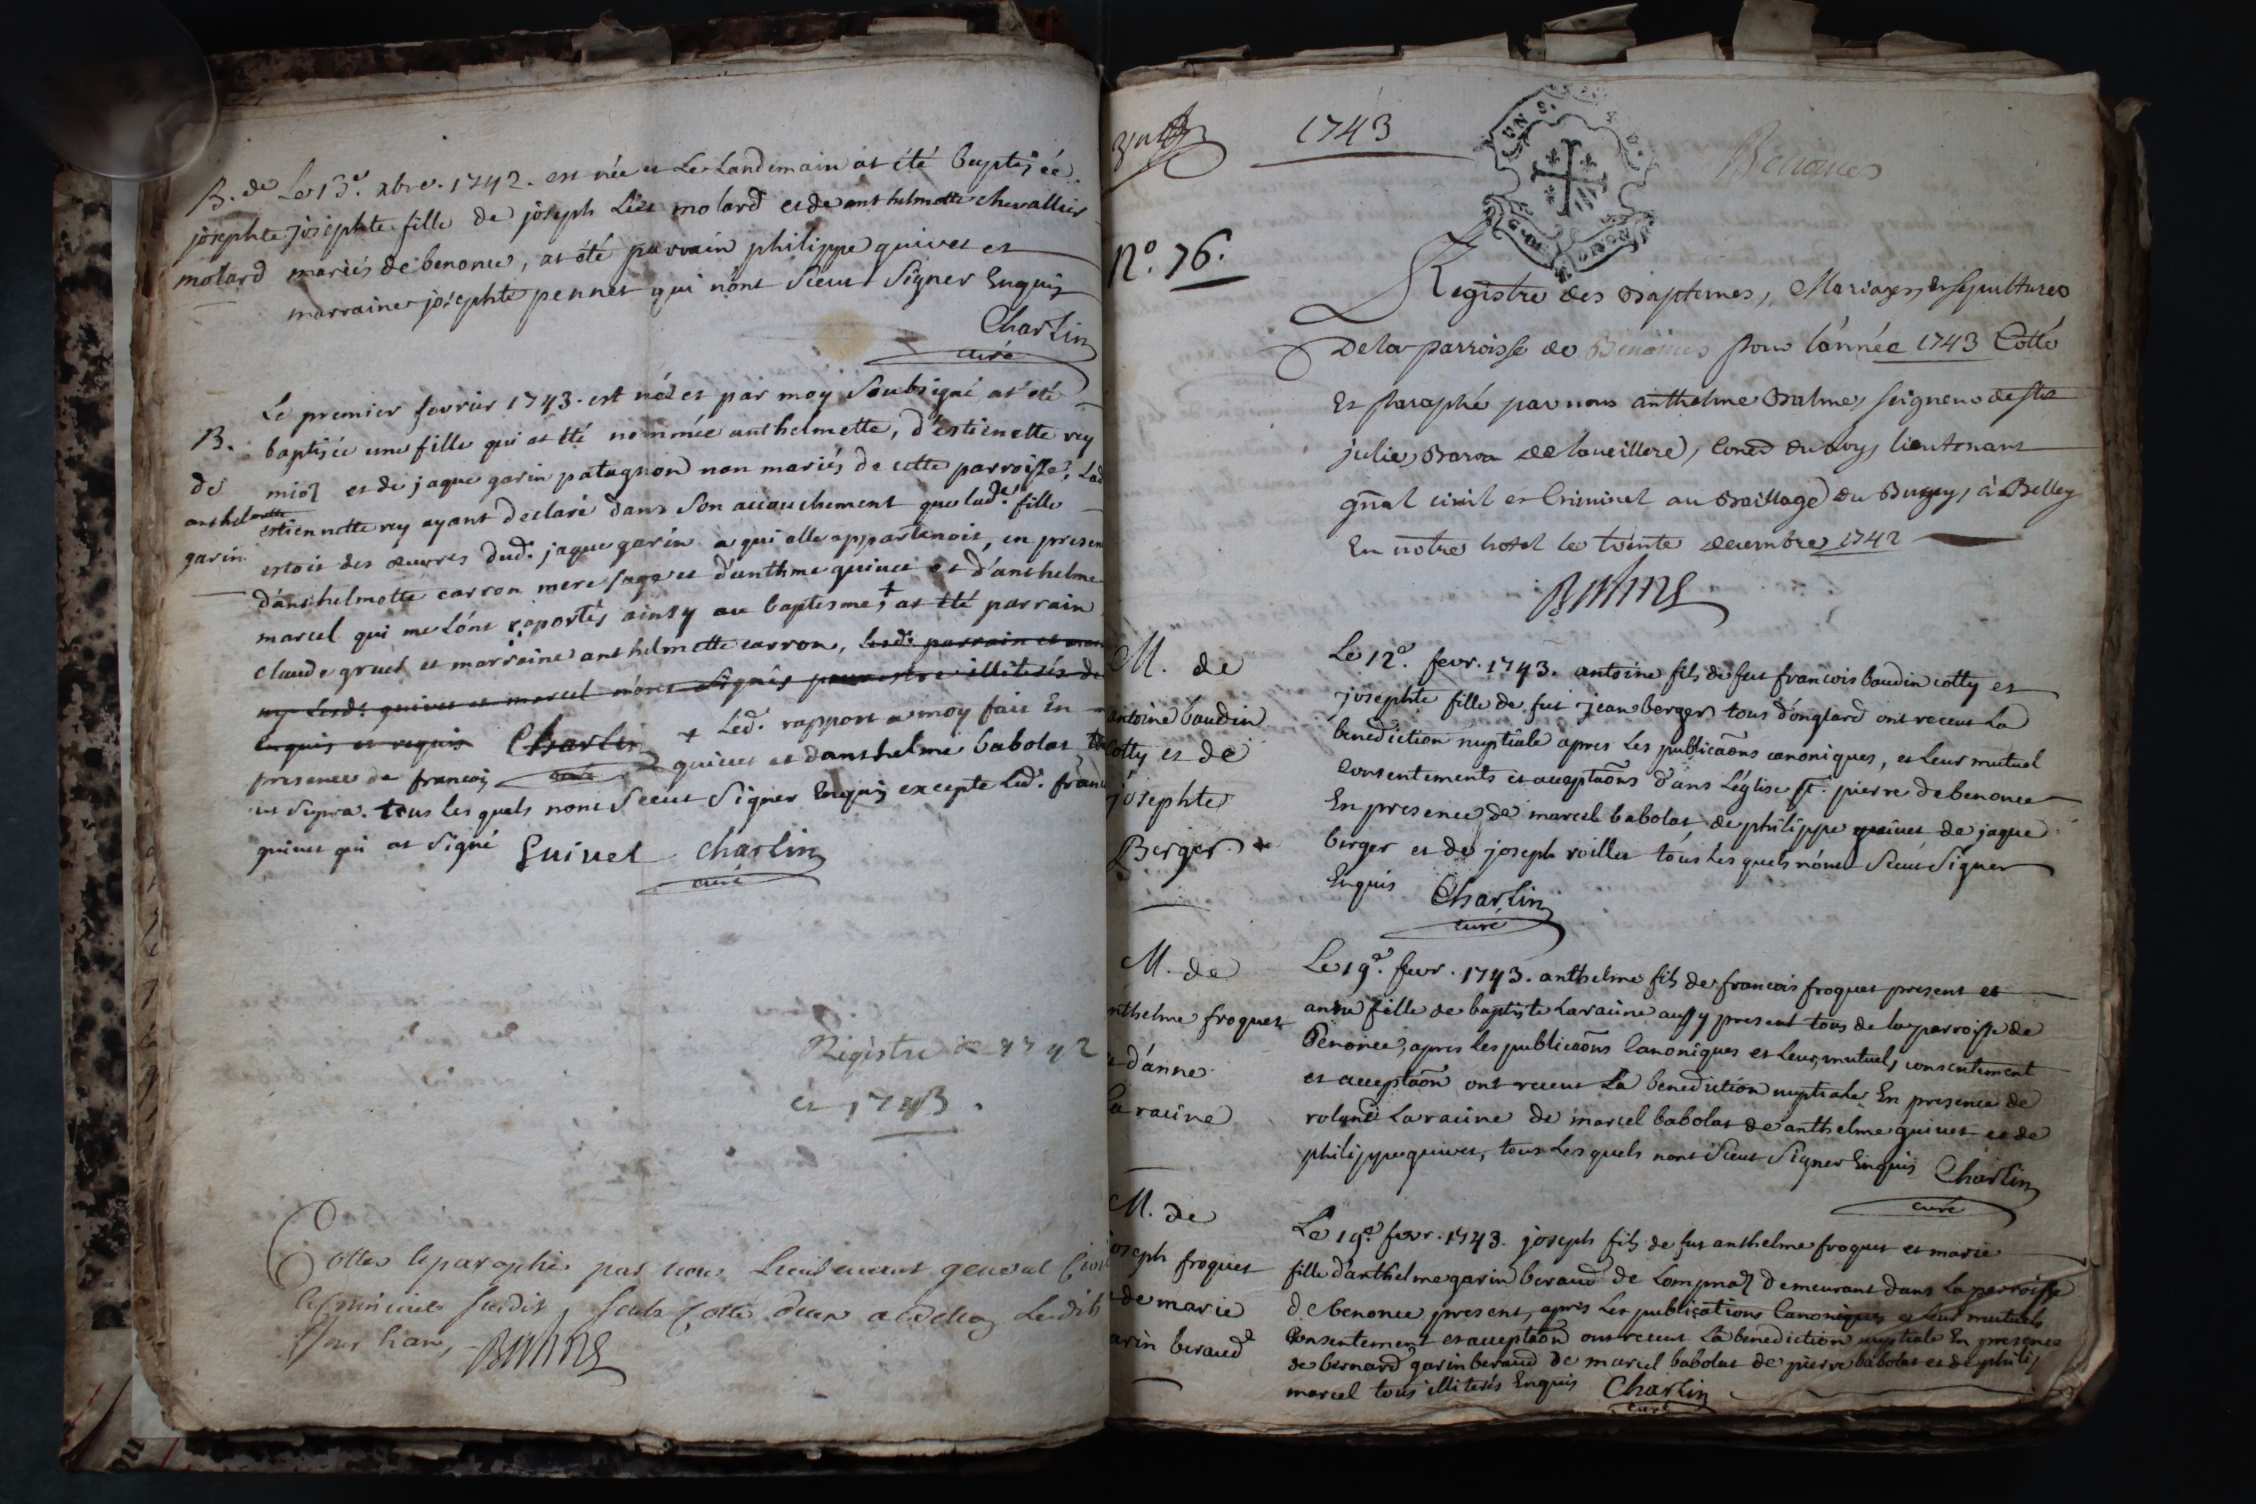 B. de Le 13e. xbre. 1742. est née et Le Landemain at été baptisée
josephte josephte fille de joseph Liet molard et de anthelmette chevallier
molard mariés de benonce, at été parrain philippe quivet et
marraine josephte pennet qui nónt Sceut Signer Enquis
Charlin
curé
Le premier fevrier 1743. est néé et par moy Soubsigné at été
B. baptisée une fille qui at été nommée anthelmette, d'estienette rey
de mioz et de jaque garin patagnon non mariés de cette parroisse, Lad
anthelmette estiennette rey ayant declaré dans Son accouchement que lade. fille
garin estoit des œuvres dud. jaque garin a qui elle appartenoit, en presen
d'anthelmette carron mere sage et d'anthme quivet et d'anthelme
marcel qui me lónt raportés ainsy au baptesme, + at été parrain
claude gruet et marraine anthelmette carron, lesd. parrain et mar
lesd. quivet et marcel nónt Signés pour estre illiterés de
enquis et requis Charlin + Led. rapport a moy fait En
presence de francois curé quivet et d'anthelme babolat
ut Supra. tous les quels nont Sceut Signer Enquis excepte Led. franc
quivet qui at Signé Quivet Charlin
curé
Registre de 1742
et 1743.
Cotté et paraphé par nous Lieutenant general Civil
et Criminel Susdit, Seuls
Balme
1743
Benonces
No. 76.
Registre des Baptemes, Mariages, et sepultures
De la parroisse de Benonces pour l'année 1743 Cotté
Et Paraphé par nous anthelme Balme, seigneur de Ste
julie, Baron de laveillere, Conser du Roy, lieutenant
gñal civil et Criminel au Baillage du Bugey, à Belley
En notre hotel le trente decembre 1742
Balme
M. de
antoine baudin
Cotty et de
josephte
Berger
Le 12e. fevr. 1743. antoine fils de feu francois baudin cotty et
josephte fille de fut jean berger tous d'onglard ont receut La
benediction nuptiale apres Les publicaõns canoniques, et Leur mutuel
consentements et acceptaõns d'ans L'église St. pierre de benonce
En presence de marcel babolat de philippe quivet de jaque
berger et de joseph roillet tous Les quels nónt Sceut Signer
Enquis Charlin
curé
M. de
nthelme froquet
t d'anne
La racine
Le 19e. fevr. 1743. anthelme fils de francois froquet present et
anne fille de baptiste Laracine aussy present tous de la parroisse de
Benonce, apres les publicaõns Canoniques et Leur mutuel, consentement
et acceptaõn ont receut La benediction nuptiale En presence de
roland Laracine de marcel babolat de anthelme quivet et de
philippe quivet, tous Les quels nont Sceut Signer Enquis Charlin
curé
M. de
oseph froquet
t de marie
arin beraud
Le 19e. fevr. 1743. joseph fils de fut anthelme froquet et marie
fille d'anthelme garin beraud de Lompnaz demeurant dans La parroisse
de benonce present, apres Les publications Canoniques et Leur mutuels
consentement et acceptaõn ont receut La benediction nuptiale En presence
de bernard garin beraud de marcel babolat de pierre babolat et de phili
marcel tous illiterés Enquis Charlin
curé